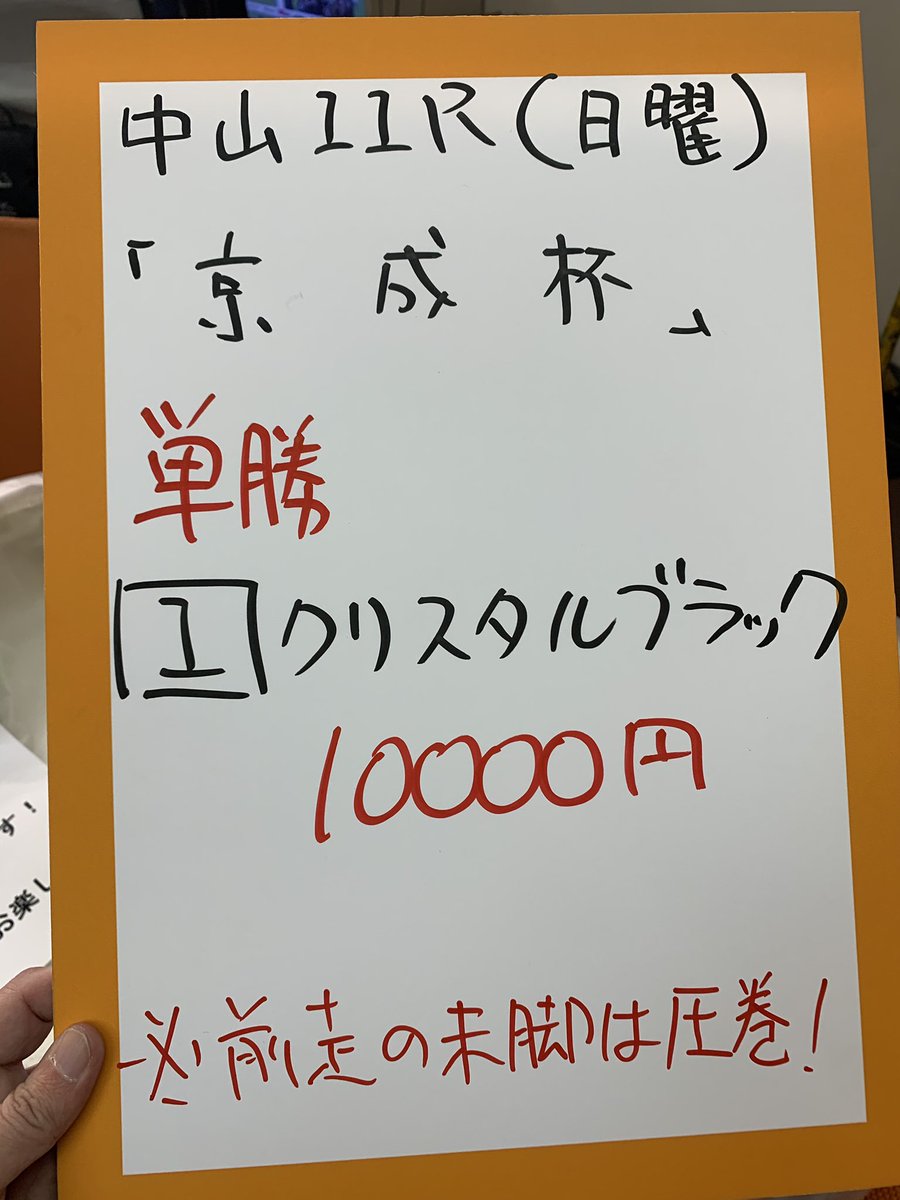 中山11R(日曜)
「京成杯」
単勝
1 クリスタルブラック
10000円
※前走の末脚は圧巻!
す!
お楽し